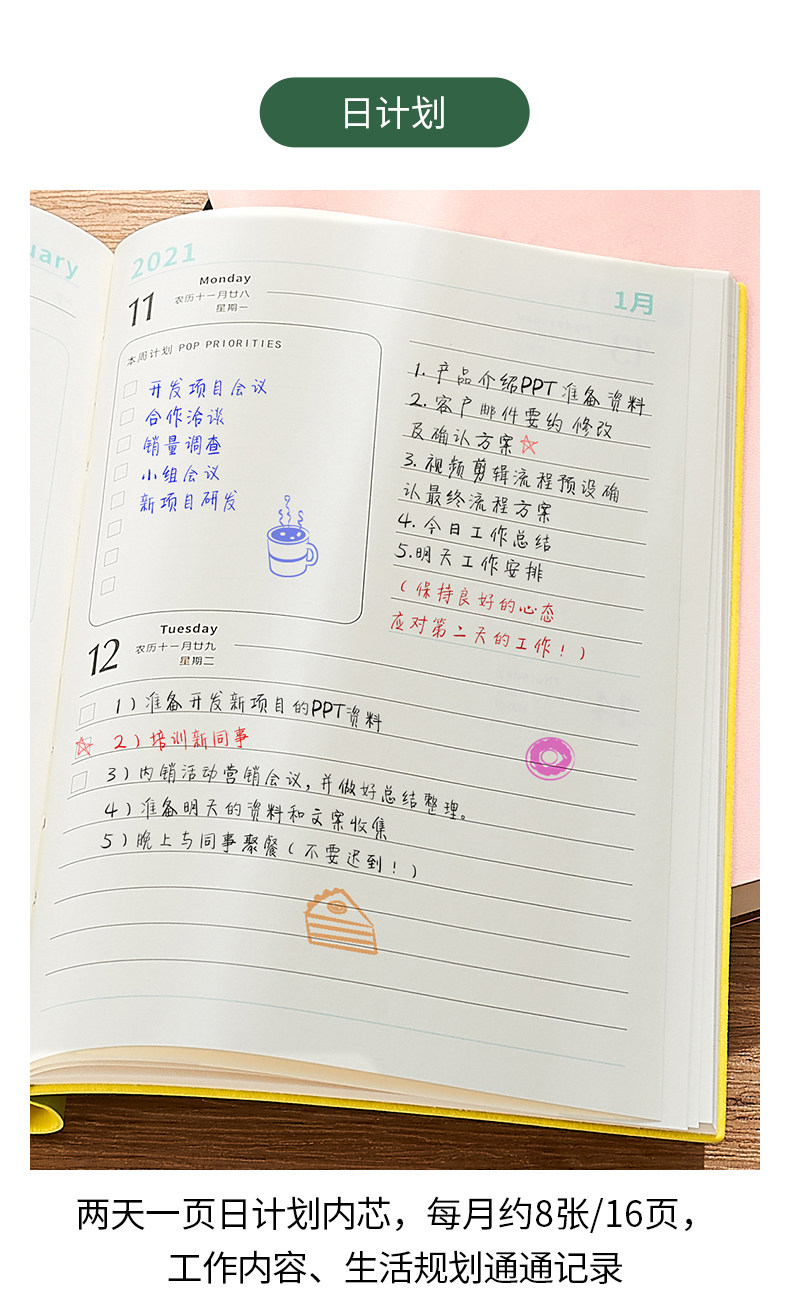 日计划
uary
2021
1月
11
Monday
农历十一月廿八
星期一
本周计划 POP PRIORITIES
开发项目会议
合作洽谈
销量调查
小组会议
新项目研发
1. 产品介绍PPT准备资料
2. 客户邮件要约 修改
及确认方案
3. 视频剪辑流程预设确
认最终流程方案
4. 今日工作总结
5. 明天工作安排
(保持良好的心态
应对第二天的工作!)
12
Tuesday
农历十一月廿九
星期二
1)准备开发新项目的PPT资料
2)培训新同事
3)内销活动营销会议,并做好总结整理。
4)准备明天的资料和文案收集
5)晚上与同事聚餐(不要迟到!)
两天一页日计划内芯,每月约8张/16页,
工作内容、生活规划通通记录